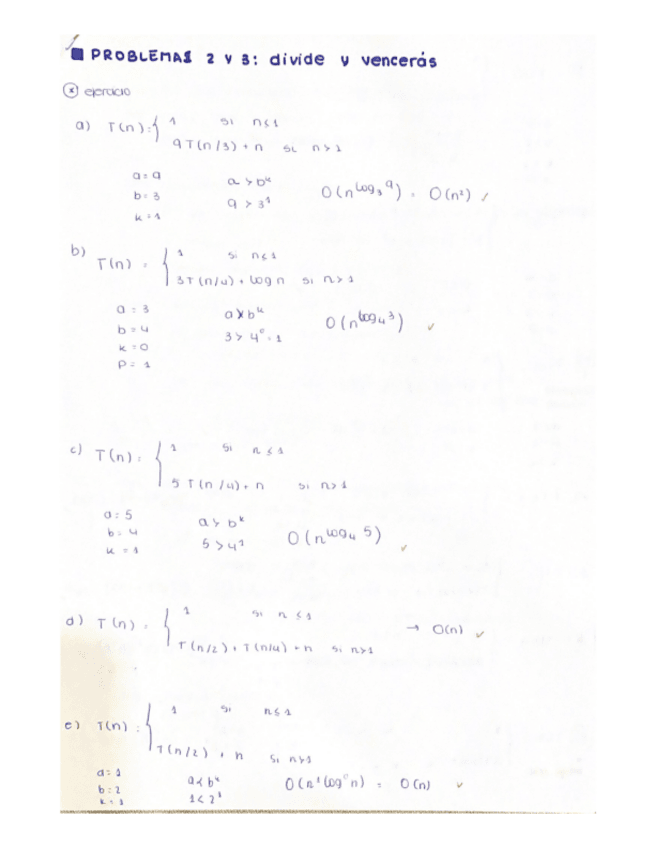 ■ PROBLEMAS 2 Y 3: divide y vencerás
* ejercicio
a) T(n): { 1 si n≤1
9T(n/3) + n si n>1
a=9
b=3
k=1
a > b^k
9 > 3^1
O(n^log₃9) = O(n²) ✓
b) T(n) = { 1 si n≤1
3T(n/4) + log n si n>1
a=3
b=4
k=0
p=1
a > b^k
3 > 4^0 = 1
O(n^log₄3) ✓
c) T(n): { 1 si n≤1
5T(n/4) + n si n>1
a=5
b=4
k=1
a > b^k
5 > 4^1
O(n^log₄5) ✓
d) T(n) = { 1 si n≤1
T(n/2) + T(n/4) + n si n>1
→ O(n) ✓
e) T(n): { 1 si n≤1
T(n/2) + n si n>1
a=1
b=2
k=1
a < b^k
1 < 2^1
O(n^1 log^0 n) = O(n) ✓